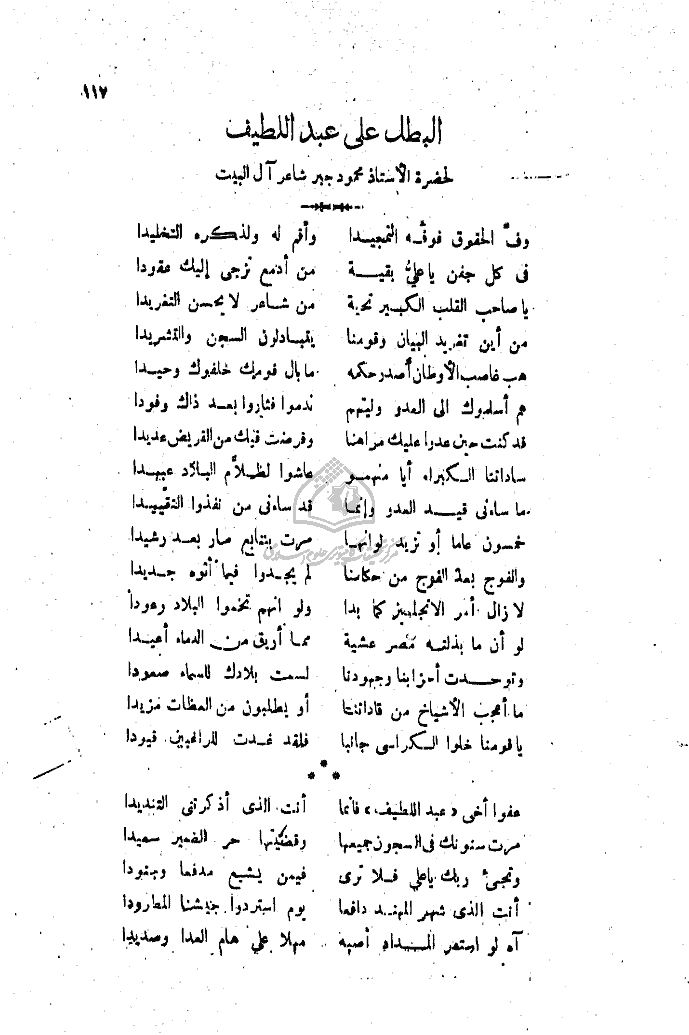 ١١٧
البطل على عبد اللطيف
لحضرة الأستاذ محمود جبر شاعر آل البيت
وفّ الحقوق فوفّه التمجيدا وأقم له ولذكره التخليدا
فى كل جفن يا علىّ بقية من أدمع تزجى إليك عقودا
يا صاحب القلب الكبير تحية من شاعر لا يحسن التغريدا
من أين تغريد البيان وقومنا يتبادلون السجن والتشريدا
هب غاصب الأوطان أصدر حكمه ما بال قومك خلفوك وحيدا
هم أسلموك الى العدو وليتهم ندموا فثاروا بعد ذاك وفودا
قد كنت حين عدوا عليك مراهنا وقرضت فيك من القريض عديدا
ساداتنا الكبراء أيا منهمو عاشوا لظلاّم البلاد عبيدا
ما ساءنى قيد العدو وإنما قد ساءنى من نفذوا التقييدا
خمسون عاما أو تزيد لوانها مرت بتتابع صار بعد رشيدا
والفوج بعد الفوج من حكامنا لم يجدوا فيما أتوه جديدا
لا زال أمر الانجليز كما بدا ولو انهم تخموا البلاد رعودا
لو أن ما بذلته مصر عشية مما أريق من الدماء أعيدا
وتوحدت أحزابنا وجهودنا لسمت بلادك للسماء صعودا
ما أعجب الأشياخ من قاداتنا أو يطلبون من العظات مزيدا
يا قومنا خلوا الكراسى جانبا فلقد غدت للراغبين قيودا
* * *
عفوا أخى « عبد اللطيف » فانما أنت الذى أذكرتنى التنديدا
مرت سنونك فى السجون جميعها وقضيتها حر الضمير سعيدا
وتجىء ربك يا على فلا ترى فيمن يشيع مدفعا وجنودا
أنت الذى شهر المهند دافعا يوم استردوا جيشنا المطرودا
آه لو استمر المداد أصبه مهلا على هام العدا وصديدا